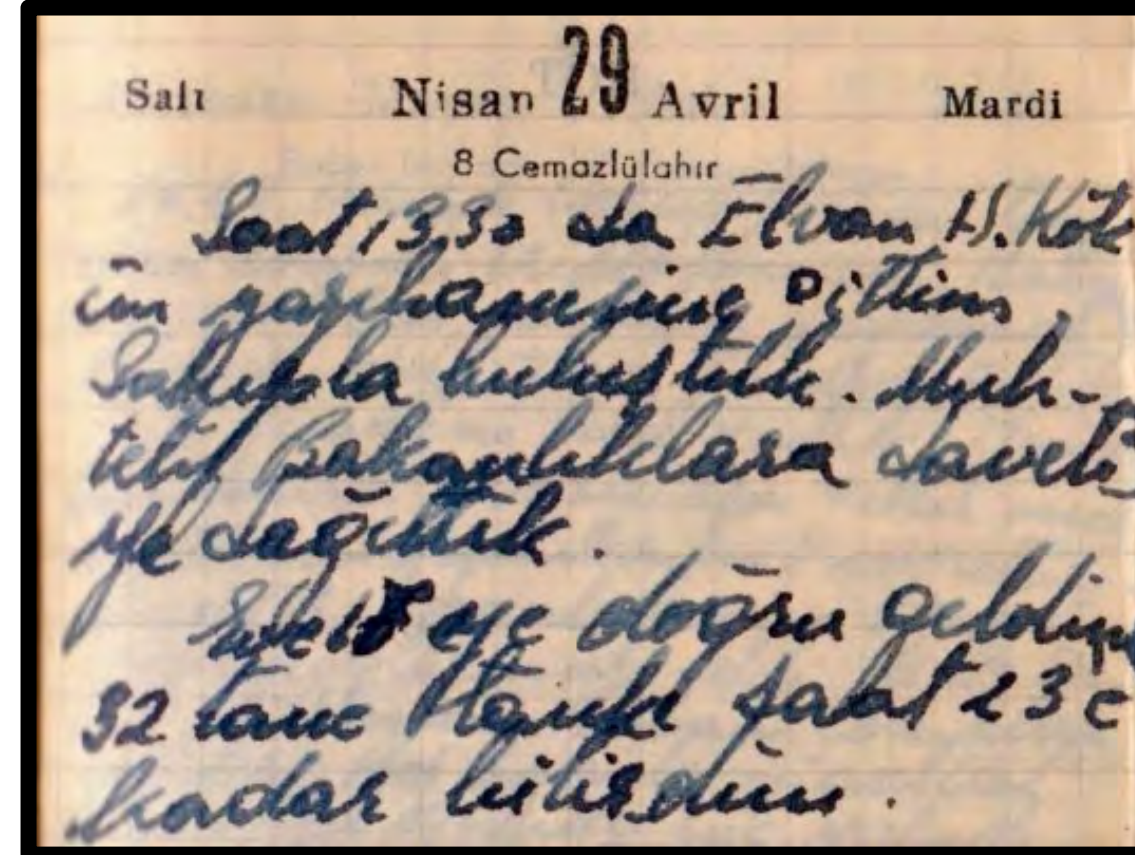 Salı Nisan 29 Avril Mardi
8 Cemazlülahır
Saat 13,30 da Elvan H. Köte
in yazıhanesine gittim.
Sakıpla buluştuk. Muh-
telif Bakanlıklara daveti
ye dağıttık.
Eve 18 eye doğru geldim
32 tane saat 23 e
kadar bitirdim.